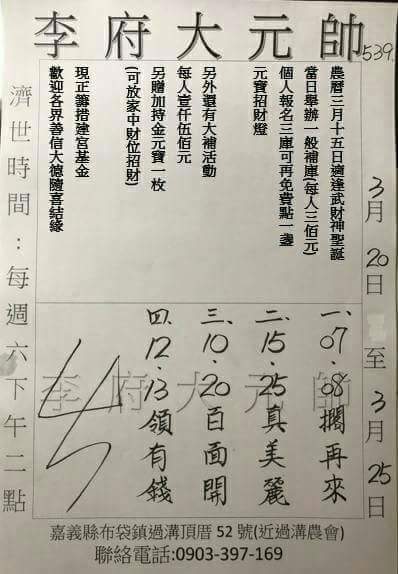 李府大元帥
539.
農曆三月十五日適逢武財神聖誕
當日舉辦一般補庫(每人三佰元)
個人報名三庫可再免費點一盞
元寶招財燈
另外還有大補活動
每人壹仟伍佰元
另贈加持金元寶一枚
(可放家中財位招財)
現正籌措建宮基金
歡迎各界善信大德隨喜結緣
3月20日至3月25日
濟世時間:每週六下午二點
李府大元帥
一、07.08擱再來
二、15.25真美麗
三、10.20百面開
四、12.13領有錢
嘉義縣布袋鎮過溝頂厝52號(近過溝農會)
聯絡電話:0903-397-169